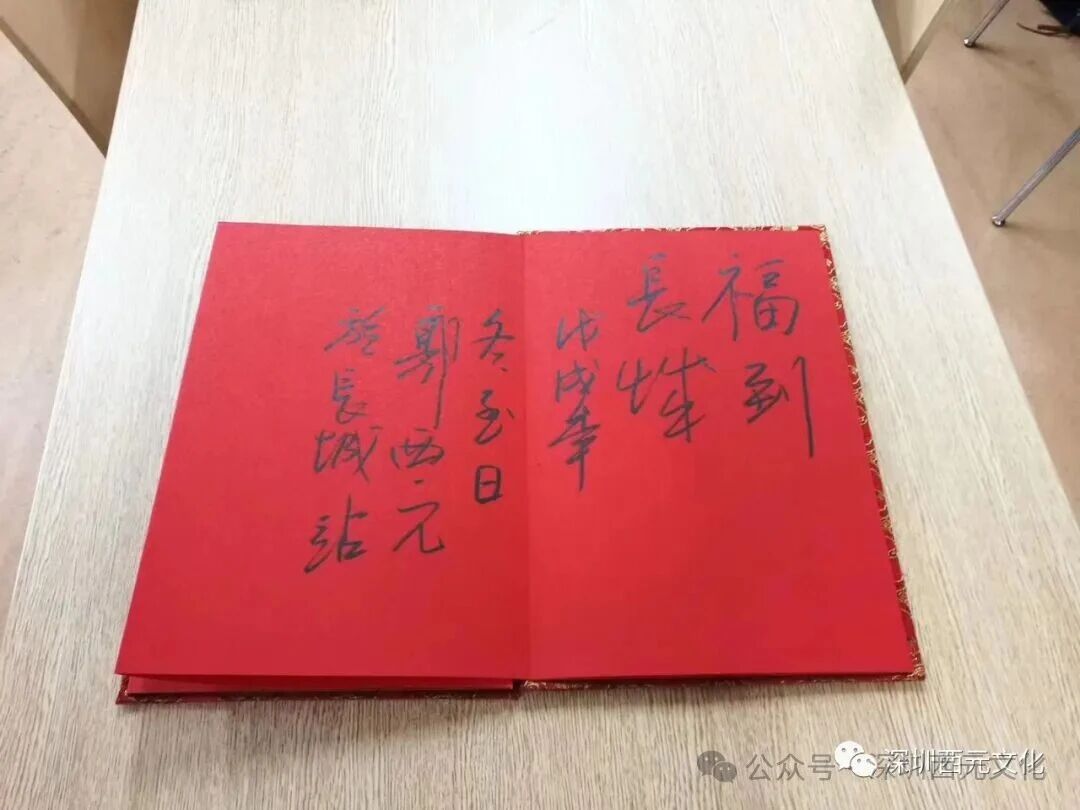 福到
長城
戊戌年
冬至日
郭西元
於長城站
公众号·深圳西元文化
深圳西元文化